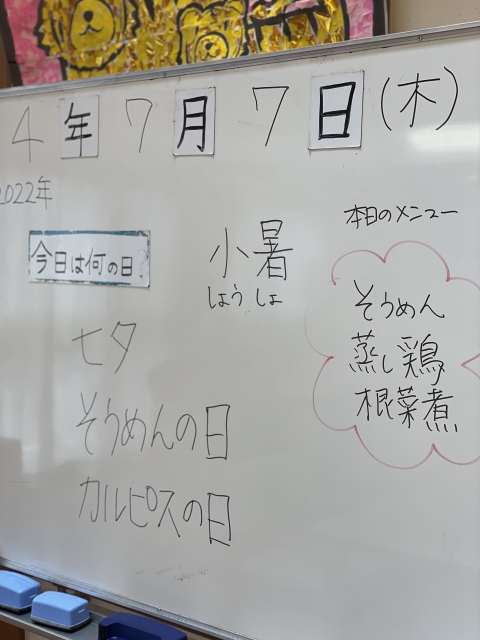 4年7月7日(木)
2022年
今日は何の日?
七夕
そうめんの日
カルピスの日
小暑
しょうしょ
本日のメニュー
そうめん
蒸し鶏
根菜煮